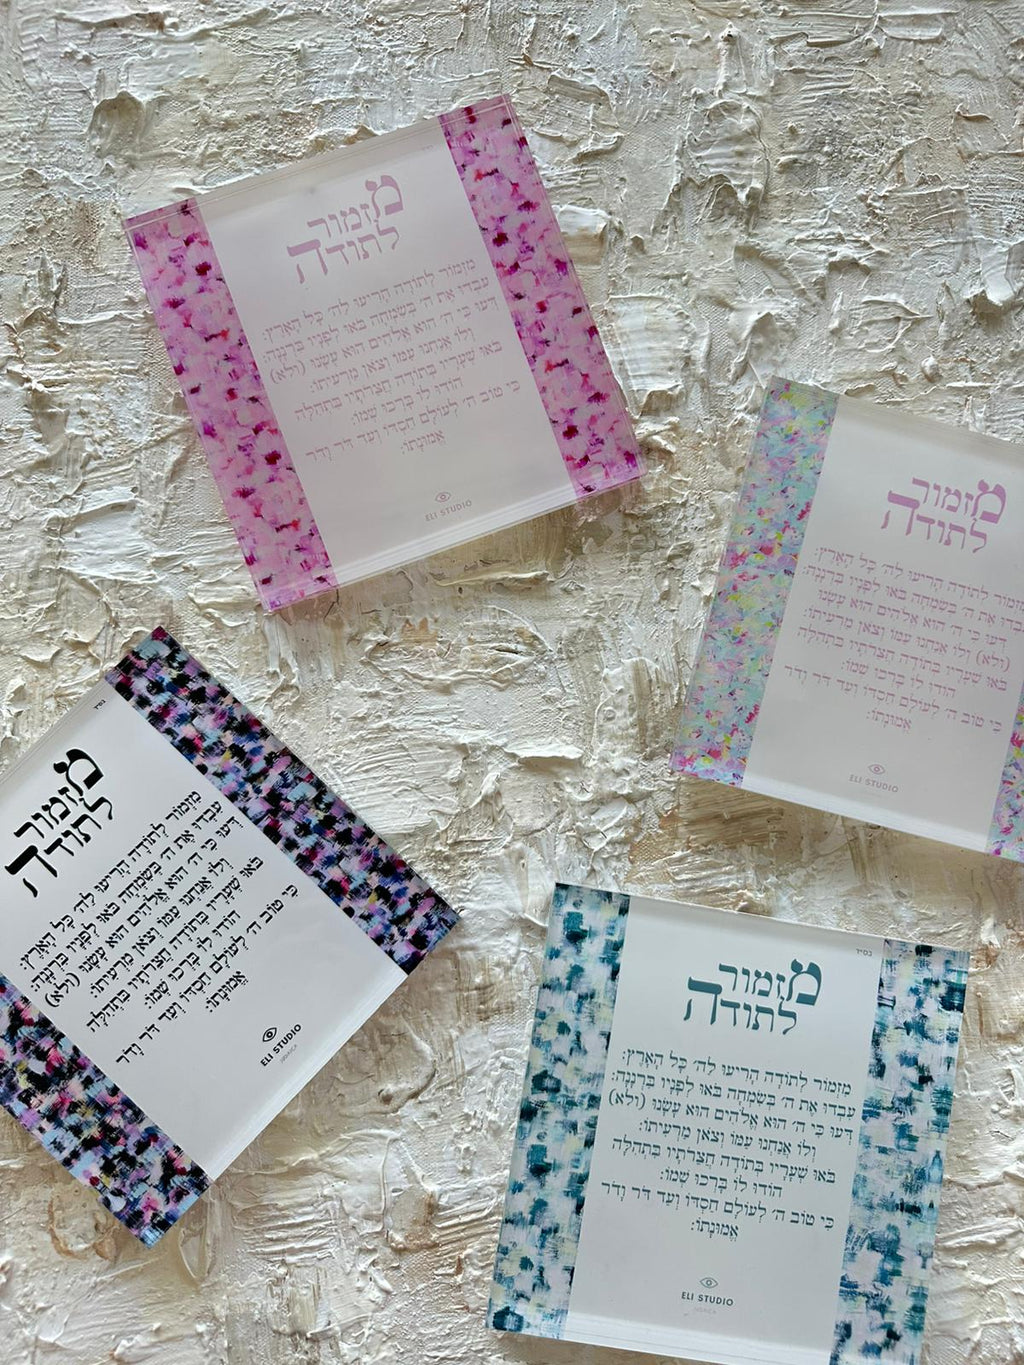 מזמור
לתודה
מִזְמוֹר לְתוֹדָה הָרִיעוּ לַה׳ כָּל הָאָרֶץ:
עִבְדוּ אֶת ה׳ בְּשִׂמְחָה בֹּאוּ לְפָנָיו בִּרְנָנָה:
דְּעוּ כִּי ה׳ הוּא אֱלֹהִים הוּא עָשָׂנוּ (ולא)
וְלוֹ אֲנַחְנוּ עַמּוֹ וְצֹאן מַרְעִיתוֹ:
בֹּאוּ שְׁעָרָיו בְּתוֹדָה חֲצֵרֹתָיו בִּתְהִלָּה
הוֹדוּ לוֹ בָּרְכוּ שְׁמוֹ:
כִּי טוֹב ה׳ לְעוֹלָם חַסְדּוֹ וְעַד דֹּר וָדֹר
אֱמוּנָתוֹ:
ELI STUDIO
מזמור
לתודה
מִזְמוֹר לְתוֹדָה הָרִיעוּ לַה׳ כָּל הָאָרֶץ:
עִבְדוּ אֶת ה׳ בְּשִׂמְחָה בֹּאוּ לְפָנָיו בִּרְנָנָה:
דְּעוּ כִּי ה׳ הוּא אֱלֹהִים הוּא עָשָׂנוּ
(ולא) וְלוֹ אֲנַחְנוּ עַמּוֹ וְצֹאן מַרְעִיתוֹ:
בֹּאוּ שְׁעָרָיו בְּתוֹדָה חֲצֵרֹתָיו בִּתְהִלָּה
הוֹדוּ לוֹ בָּרְכוּ שְׁמוֹ:
כִּי טוֹב ה׳ לְעוֹלָם חַסְדּוֹ וְעַד דֹּר וָדֹר
אֱמוּנָתוֹ:
ELI STUDIO
בס״ד
מזמור
לתודה
מִזְמוֹר לְתוֹדָה הָרִיעוּ לַה׳ כָּל הָאָרֶץ:
עִבְדוּ אֶת ה׳ בְּשִׂמְחָה בֹּאוּ לְפָנָיו בִּרְנָנָה:
דְּעוּ כִּי ה׳ הוּא אֱלֹהִים הוּא עָשָׂנוּ (ולא)
וְלוֹ אֲנַחְנוּ עַמּוֹ וְצֹאן מַרְעִיתוֹ:
בֹּאוּ שְׁעָרָיו בְּתוֹדָה חֲצֵרֹתָיו בִּתְהִלָּה
הוֹדוּ לוֹ בָּרְכוּ שְׁמוֹ:
כִּי טוֹב ה׳ לְעוֹלָם חַסְדּוֹ וְעַד דֹּר וָדֹר
אֱמוּנָתוֹ:
ELI STUDIO
JUDAICA
בס״ד
מזמור
לתודה
מִזְמוֹר לְתוֹדָה הָרִיעוּ לַה׳ כָּל הָאָרֶץ:
עִבְדוּ אֶת ה׳ בְּשִׂמְחָה בֹּאוּ לְפָנָיו בִּרְנָנָה:
דְּעוּ כִּי ה׳ הוּא אֱלֹהִים הוּא עָשָׂנוּ (ולא)
וְלוֹ אֲנַחְנוּ עַמּוֹ וְצֹאן מַרְעִיתוֹ:
בֹּאוּ שְׁעָרָיו בְּתוֹדָה חֲצֵרֹתָיו בִּתְהִלָּה
הוֹדוּ לוֹ בָּרְכוּ שְׁמוֹ:
כִּי טוֹב ה׳ לְעוֹלָם חַסְדּוֹ וְעַד דֹּר וָדֹר
אֱמוּנָתוֹ:
ELI STUDIO
JUDAICA